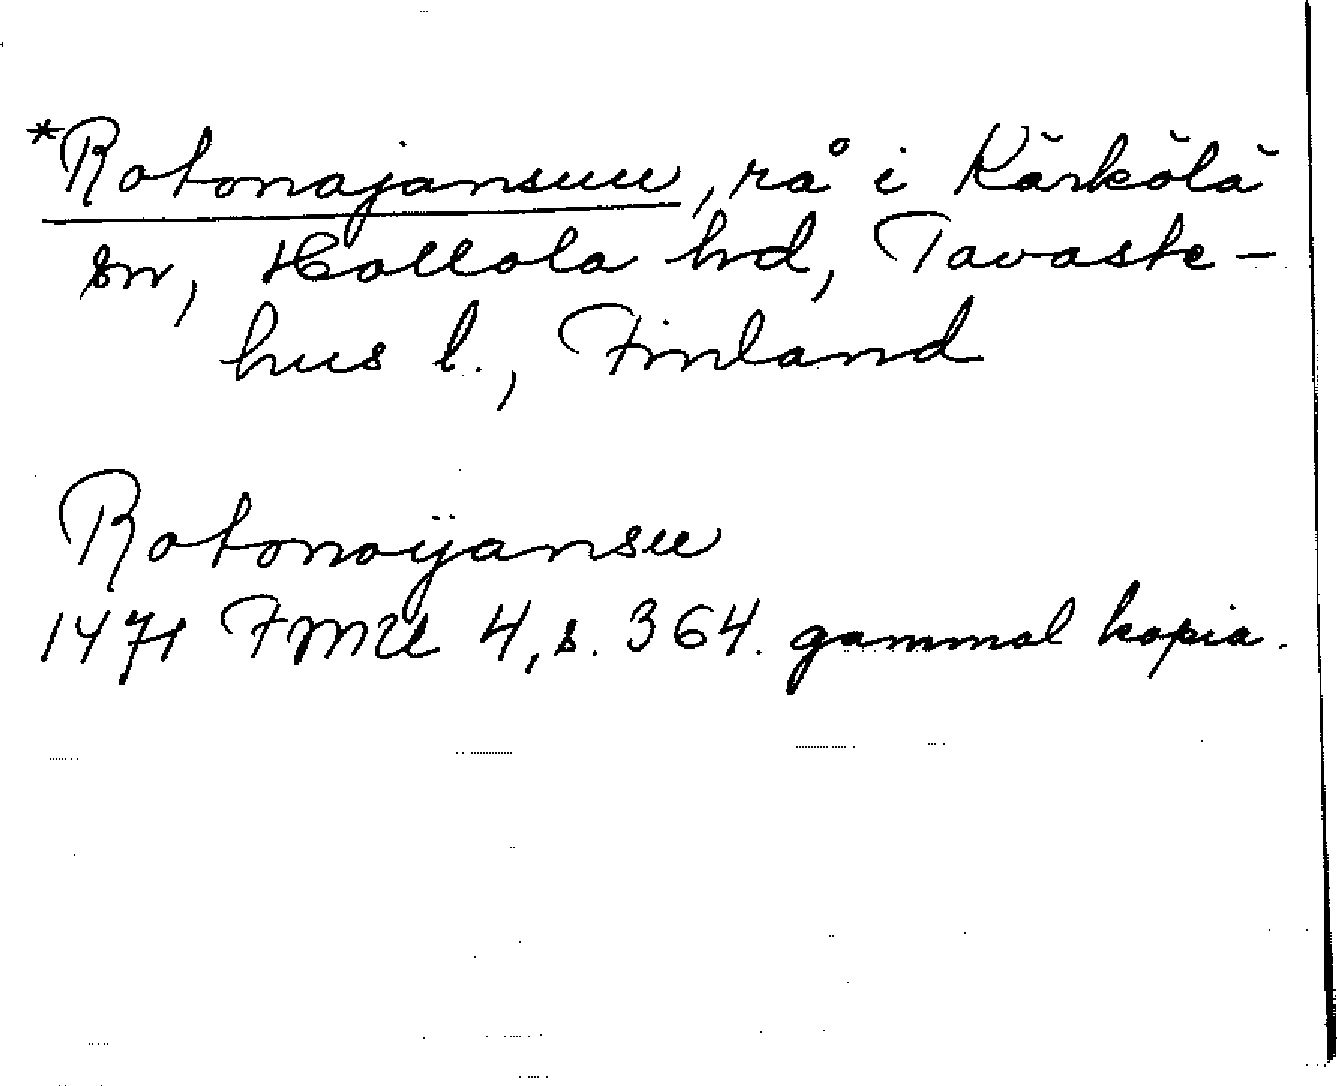 *Rotonajansuu, rå i Kärkölä
sn, Hollola hd, Tavaste-
hus l., Finland
Rotonaÿansu
1471 FMU 4, s. 364. gammal kopia.